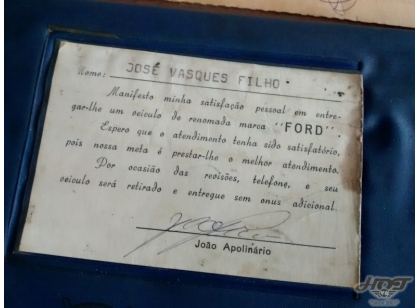 Nome: JOSÉ VASQUES FILHO
Manifesto minha satisfação pessoal em entre-
gar-lhe um veículo de renomada marca "FORD".
Espero que o atendimento tenha sido satisfatório,
pois nossa meta é prestar-lhe o melhor atendimento.
Por ocasião das revisões, telefone, e seu
veículo será retirado e entregue sem onus adicional.
João Apolinário